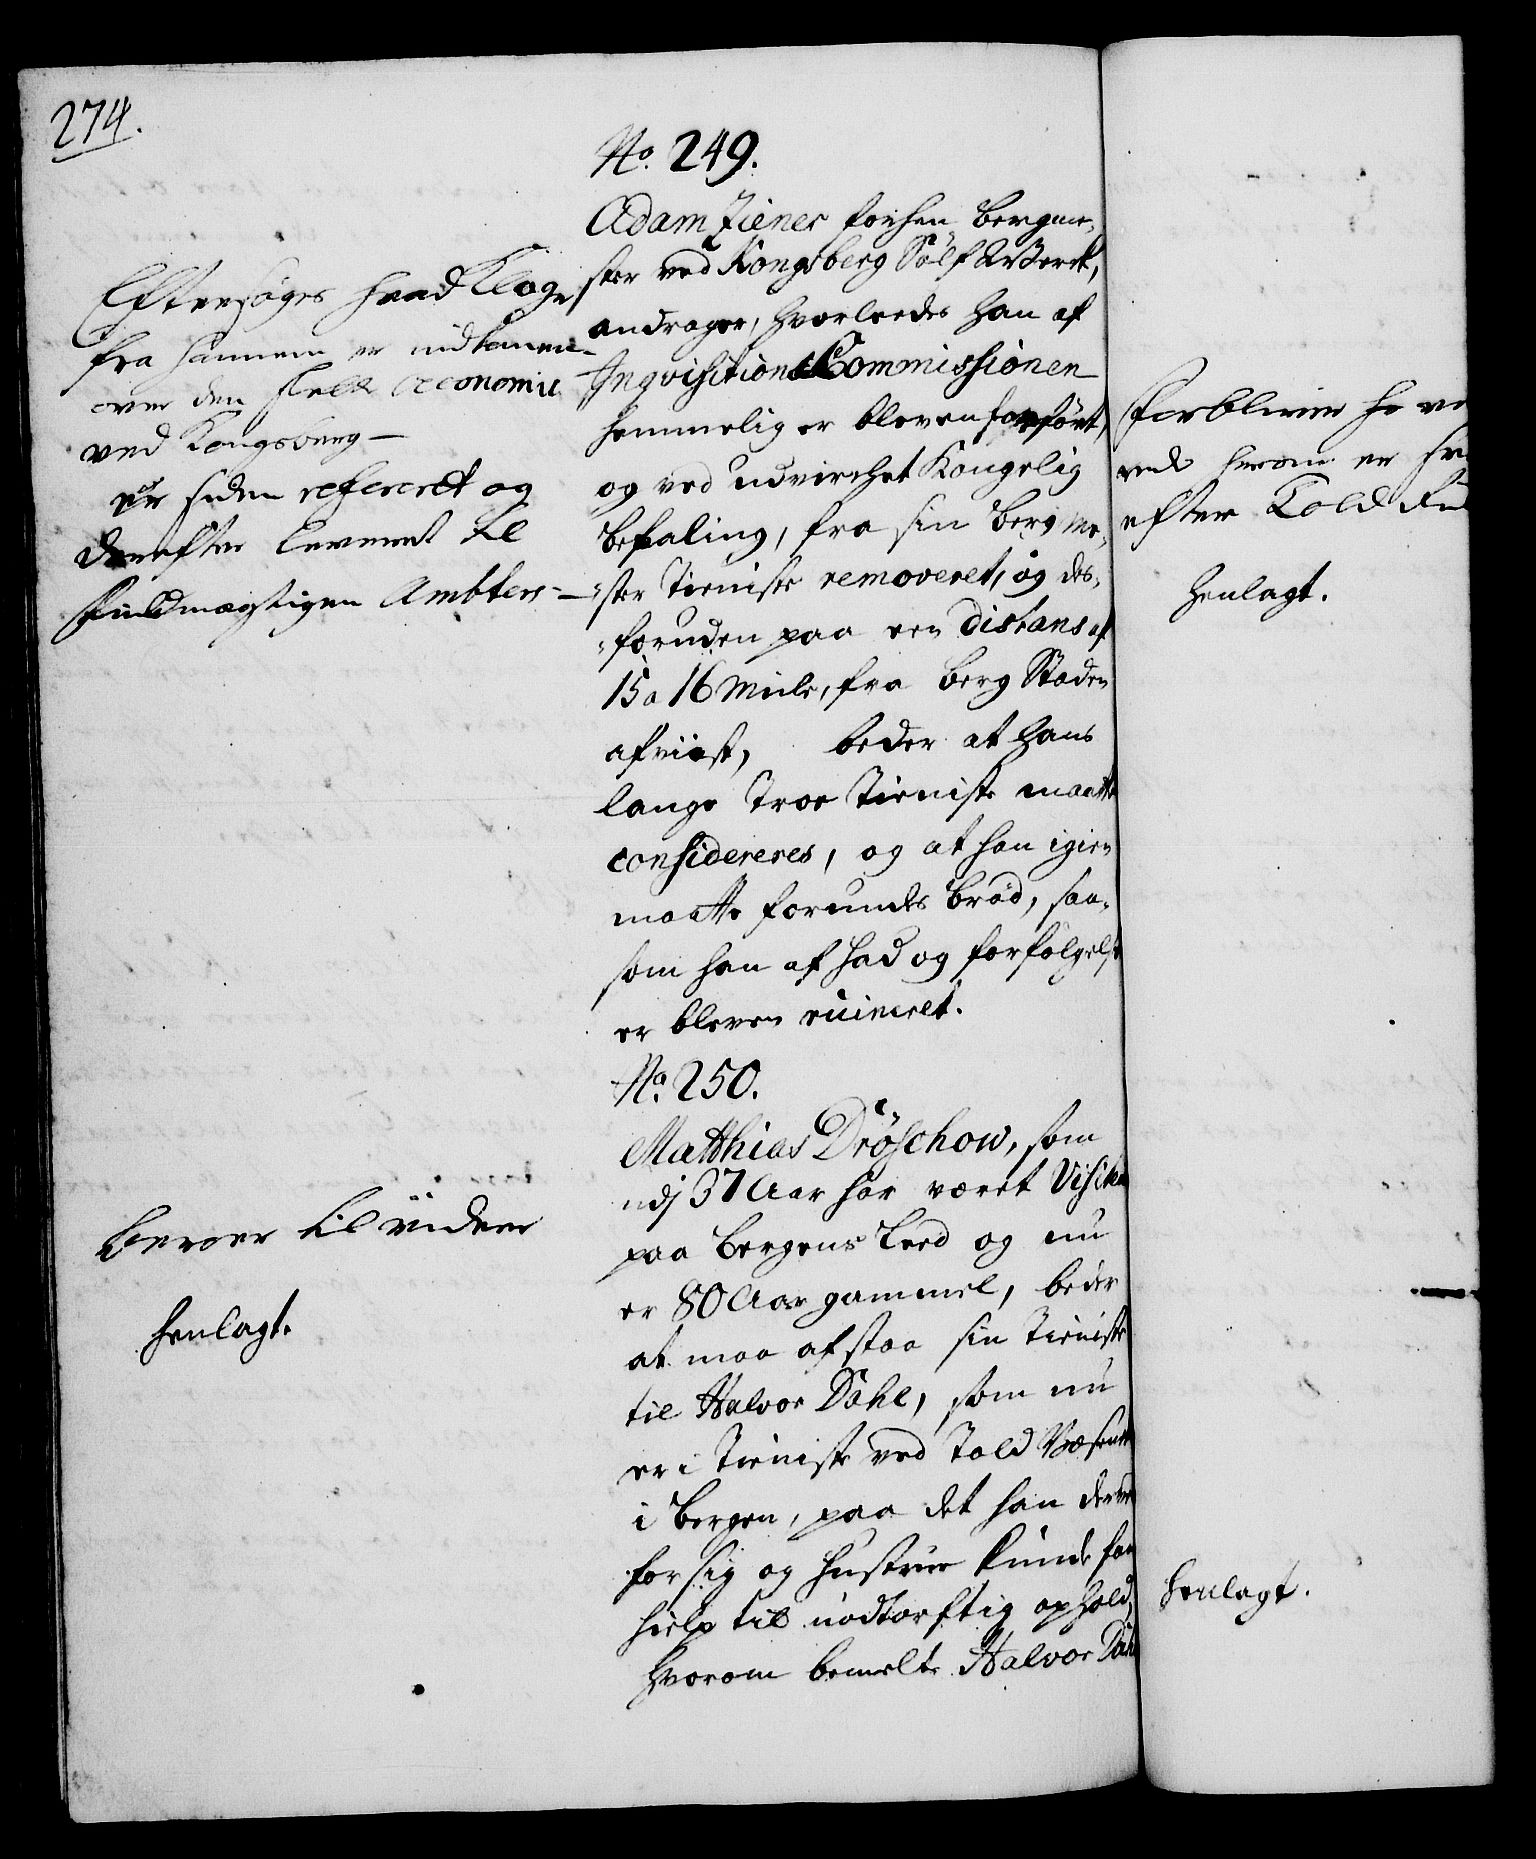 274.
No. 249.
Adam Ziener forhen Bergme-
ster ved Kongsberg Sölf Werck,
andrager, hvorleedes han af
Inqvisitions Commissionen
hemmelig er bleven forfört,
og ved udvircket Kongelig
Befaling, fra sin Berg me-
ster Tieniste removeret, og des-
foruden paa een Distans af
15 a 16 Miile, fra Berg Staden
afviist, beder at hans
lange Troe Tieniste maatte
considereres, og at han igien
maatte forundes Bröd, saa-
som han af had og forfölgelse
er bleven ruineret.
Eftersöges hvad Klage
fra hannem er indkommen
over den slette oeconomie
ved Kongsberg —
er siden refereret og
derefter leveret til
Fuldmægtigen Ambters —
No. 250.
Matthias Dröschow, som
udj 37 Aar har været Visiteur
paa Bergens Leed og nu
er 80 Aar gammel, beder
at maa afstaa sin Tieniste
til Halvor Dahl, som nu
er i Tieniste ved Told Væsenet
i Bergen, paa det han derved
for sig og Hustrue kunde faa
hielp til nödtorftig ophold,
hvorom bemelte Halvor Dahl
Beroer til videre
henlagt.
Forbliver
efter Told
Henlagt.
henlagt.